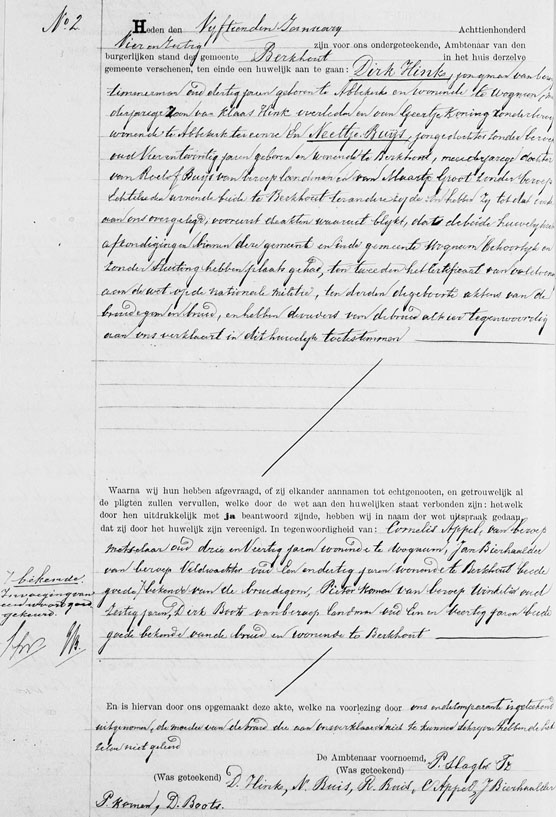 No 2.
Heden den Vyftienden January Achttienhonderd
Vier en tachtig zijn voor ons ondergeteekende, Ambtenaar van den
burgerlijken stand der gemeente Berkhout in het huis derzelve
gemeente verschenen, ten einde een huwelijk aan te gaan: Dirk Hink, jongman van beroep
timmerman oud dertig jaren geboren te Abbekerk en wonende te Wognum,
zoon van Klaas Hink overleden en van Geertje Koning zonder beroep
wonende te Abbekerk ter eenre En Neeltje Buijs, jongedochter zonder beroep
oud Vierentwintig jaren geboren en wonende te Berkhout, meerderjarige dochter
van Roelof Buijs van beroep landman en van Maartje Groot zonder beroep
Echtelieden wonende beide te Berkhout ter andere zijde En hebben zij tot dat einde
aan ons overgelegd, vooreerst de akten waaruit blijkt, dat de beide huwelijks
afkondigingen binnen deze gemeente en in de gemeente Wognum behoorlijk en
zonder stuiting hebben plaats gehad, ten tweeden het Certificaat van voldoening
aan de wet op de nationale militie, ten derden de geboorte aktens van de
bruidegom en bruid, en hebben de ouders van de bruid alhier tegenwoordig
aan ons verklaart in dit huwelijk toetestemmen
Waarna wij hun hebben afgevraagd, of zij elkander aannamen tot echtgenooten, en getrouwelijk al
de pligten zullen vervullen, welke door de wet aan den huwelijken staat verbonden zijn: hetwelk
door hen uitdrukkelijk met ja beantwoord zijnde, hebben wij in naam der wet uitspraak gedaan,
dat zij door het huwelijk zijn vereenigd. In tegenwoordigheid van: Cornelis Appel, van beroep
metselaar oud drie en Veertig jaren wonende te Wognum, Jan Bierhaalder
van beroep Veldwachter oud Een en dertig jaren wonende te Berkhout beide
goede bekende van de bruidegom, Pieter Komen van beroep Winkelier oud
Zestig jaren, Dirk Boots van beroep landman oud Een en Veertig jaren beide
goede bekende van de bruid en wonende te Berkhout
bekende
goed
gekeurd.
En is hiervan door ons opgemaakt deze akte, welke na voorlezing door ons en de comparanten is geteekend
uitgenomen, de moeder van de bruid die aan ons verklaarde niet te kunnen schrijven hebbende
niet geleerd
De Ambtenaar voornoemd, P. Slagter Tz
(Was geteekend)
(Was geteekend) D. Hink, N. Buis, R. Buis, C Appel, J Bierhaalder
P. Komen, D. Boots.